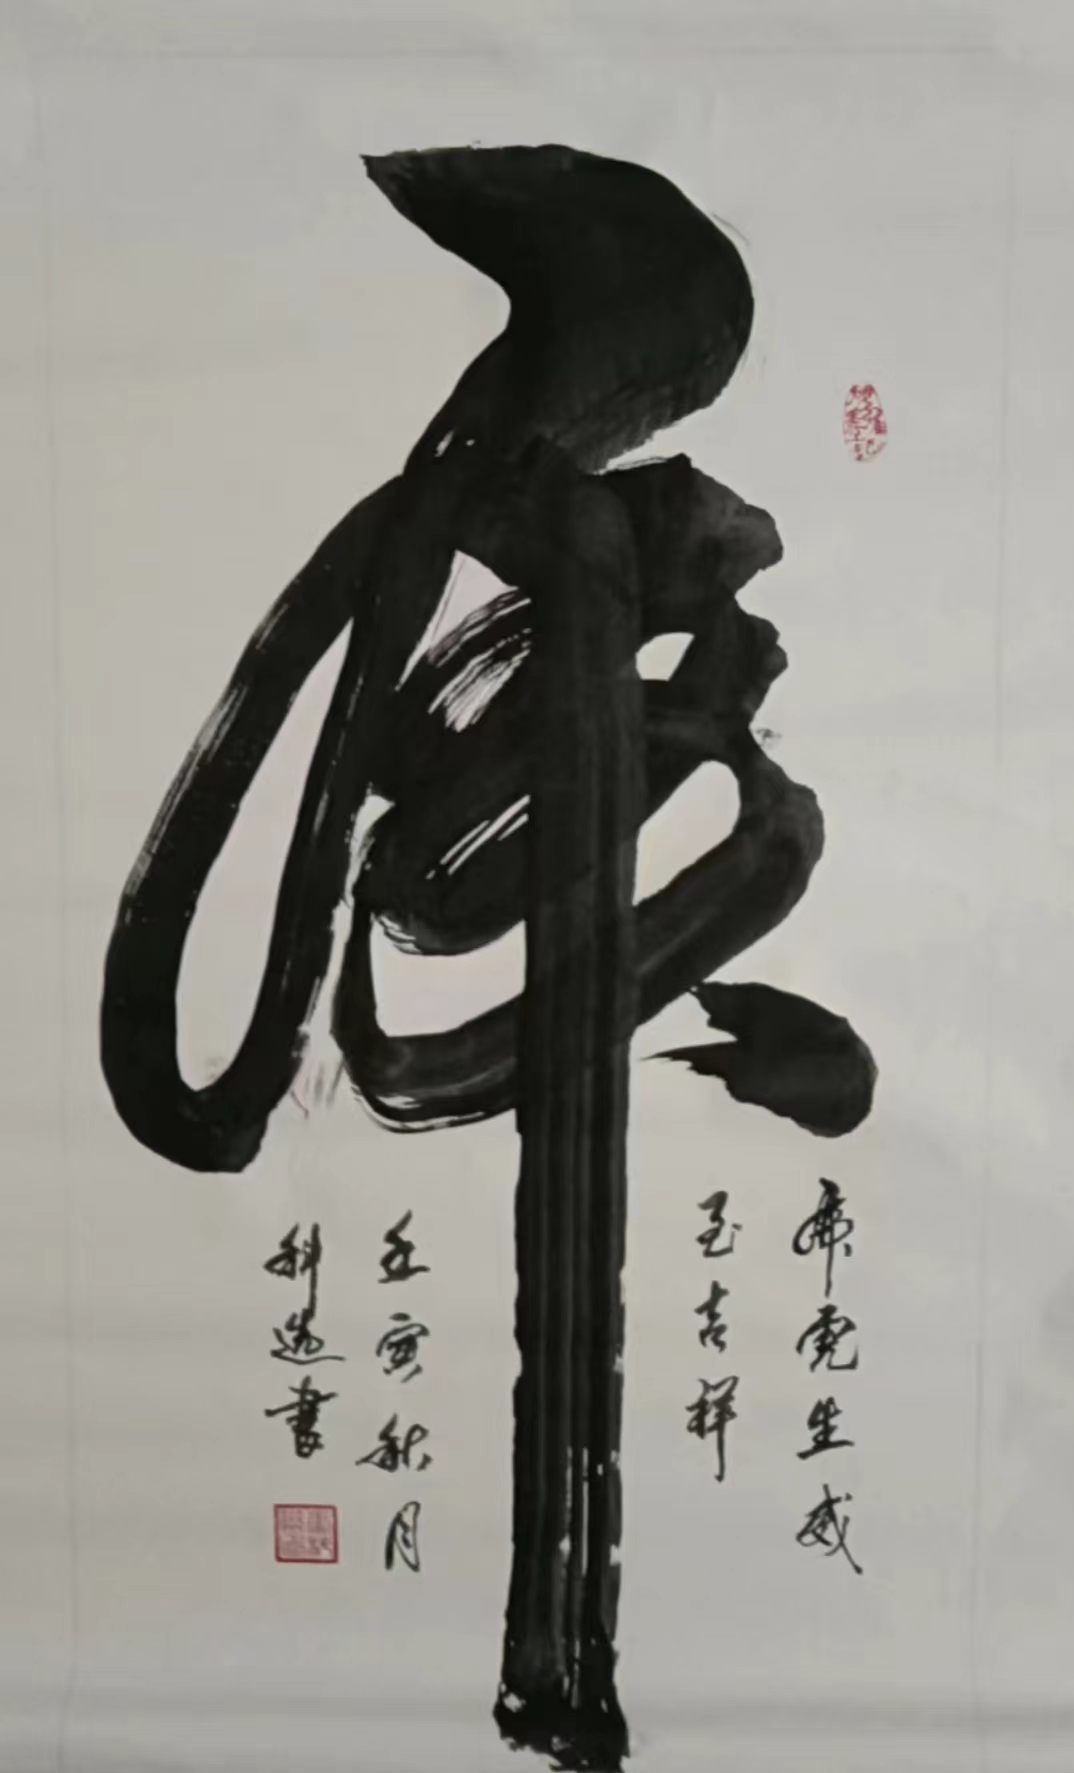 虎
虎虎生威
至吉祥
壬寅秋月
科选書